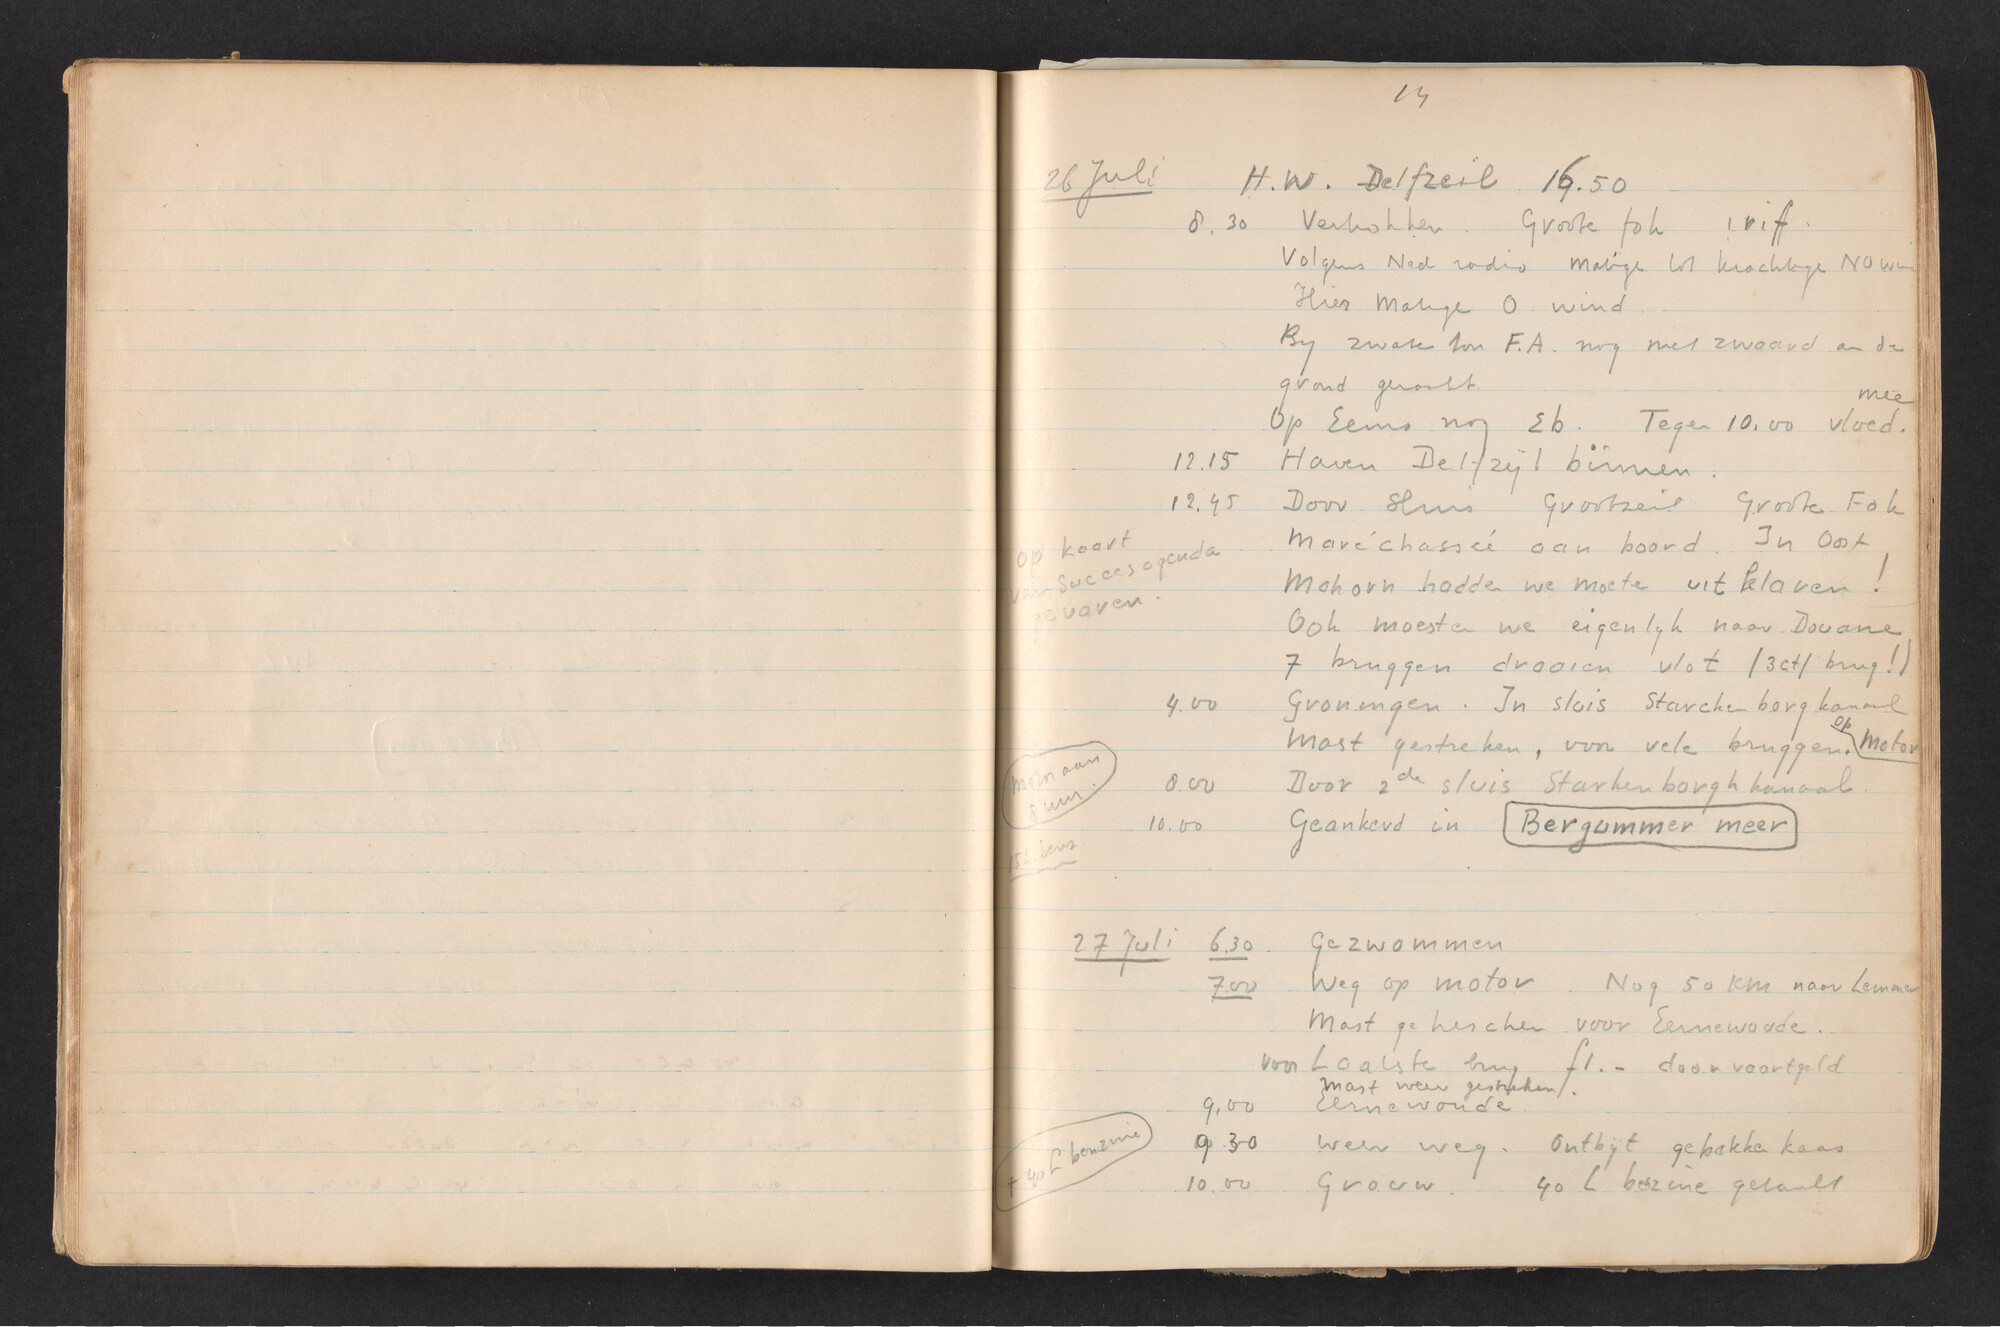 14
26 Juli H.W. Delfzeil 16.50
8.30 Vertrokken. Groote fok 1 riff.
Volgens Ned radio matige tot krachtige NO win
Hier matige O wind
By zwarte ton F.A. nog met zwaard aan de
grond geraakt.
Op Eems nog Eb. Tegen 10.00 vloed.
mee
12.15 Haven Delfzijl binnen.
12.45 Door sluis Grootzeil Groote Fok
Maréchasseé aan boord. In Oost
Mahorn hadden we moeten uitklaren!
Ook moesten we eigenlyk naar Douane
7 bruggen draaien vlot (3ct/brug!)
op kaart
van Succes agenda
gevaren.
4.00 Groningen. In sluis Starckenborg kanaal
Mast gestreken, voor vele bruggen. op Motor
8.00 Door 2de sluis Starkenborgh kanaal.
motor aan
8 uur.
10.00 Geankerd in Bergummer meer
15 L. benz.
27 Juli 6.30 Gezwommen
7.00 Weg op motor. Nog 50 km naar Lemmer
Mast geheschen voor Eernewoude.
voor Laatste brug f1.- doorvaartgeld
Mast weer gestreken.
9.00 Eernewoude
9.30 weer weg. Ontbijt gebakken kaas
+ 40 L benzine
10.00 Grouw. 40 L benzine getankt